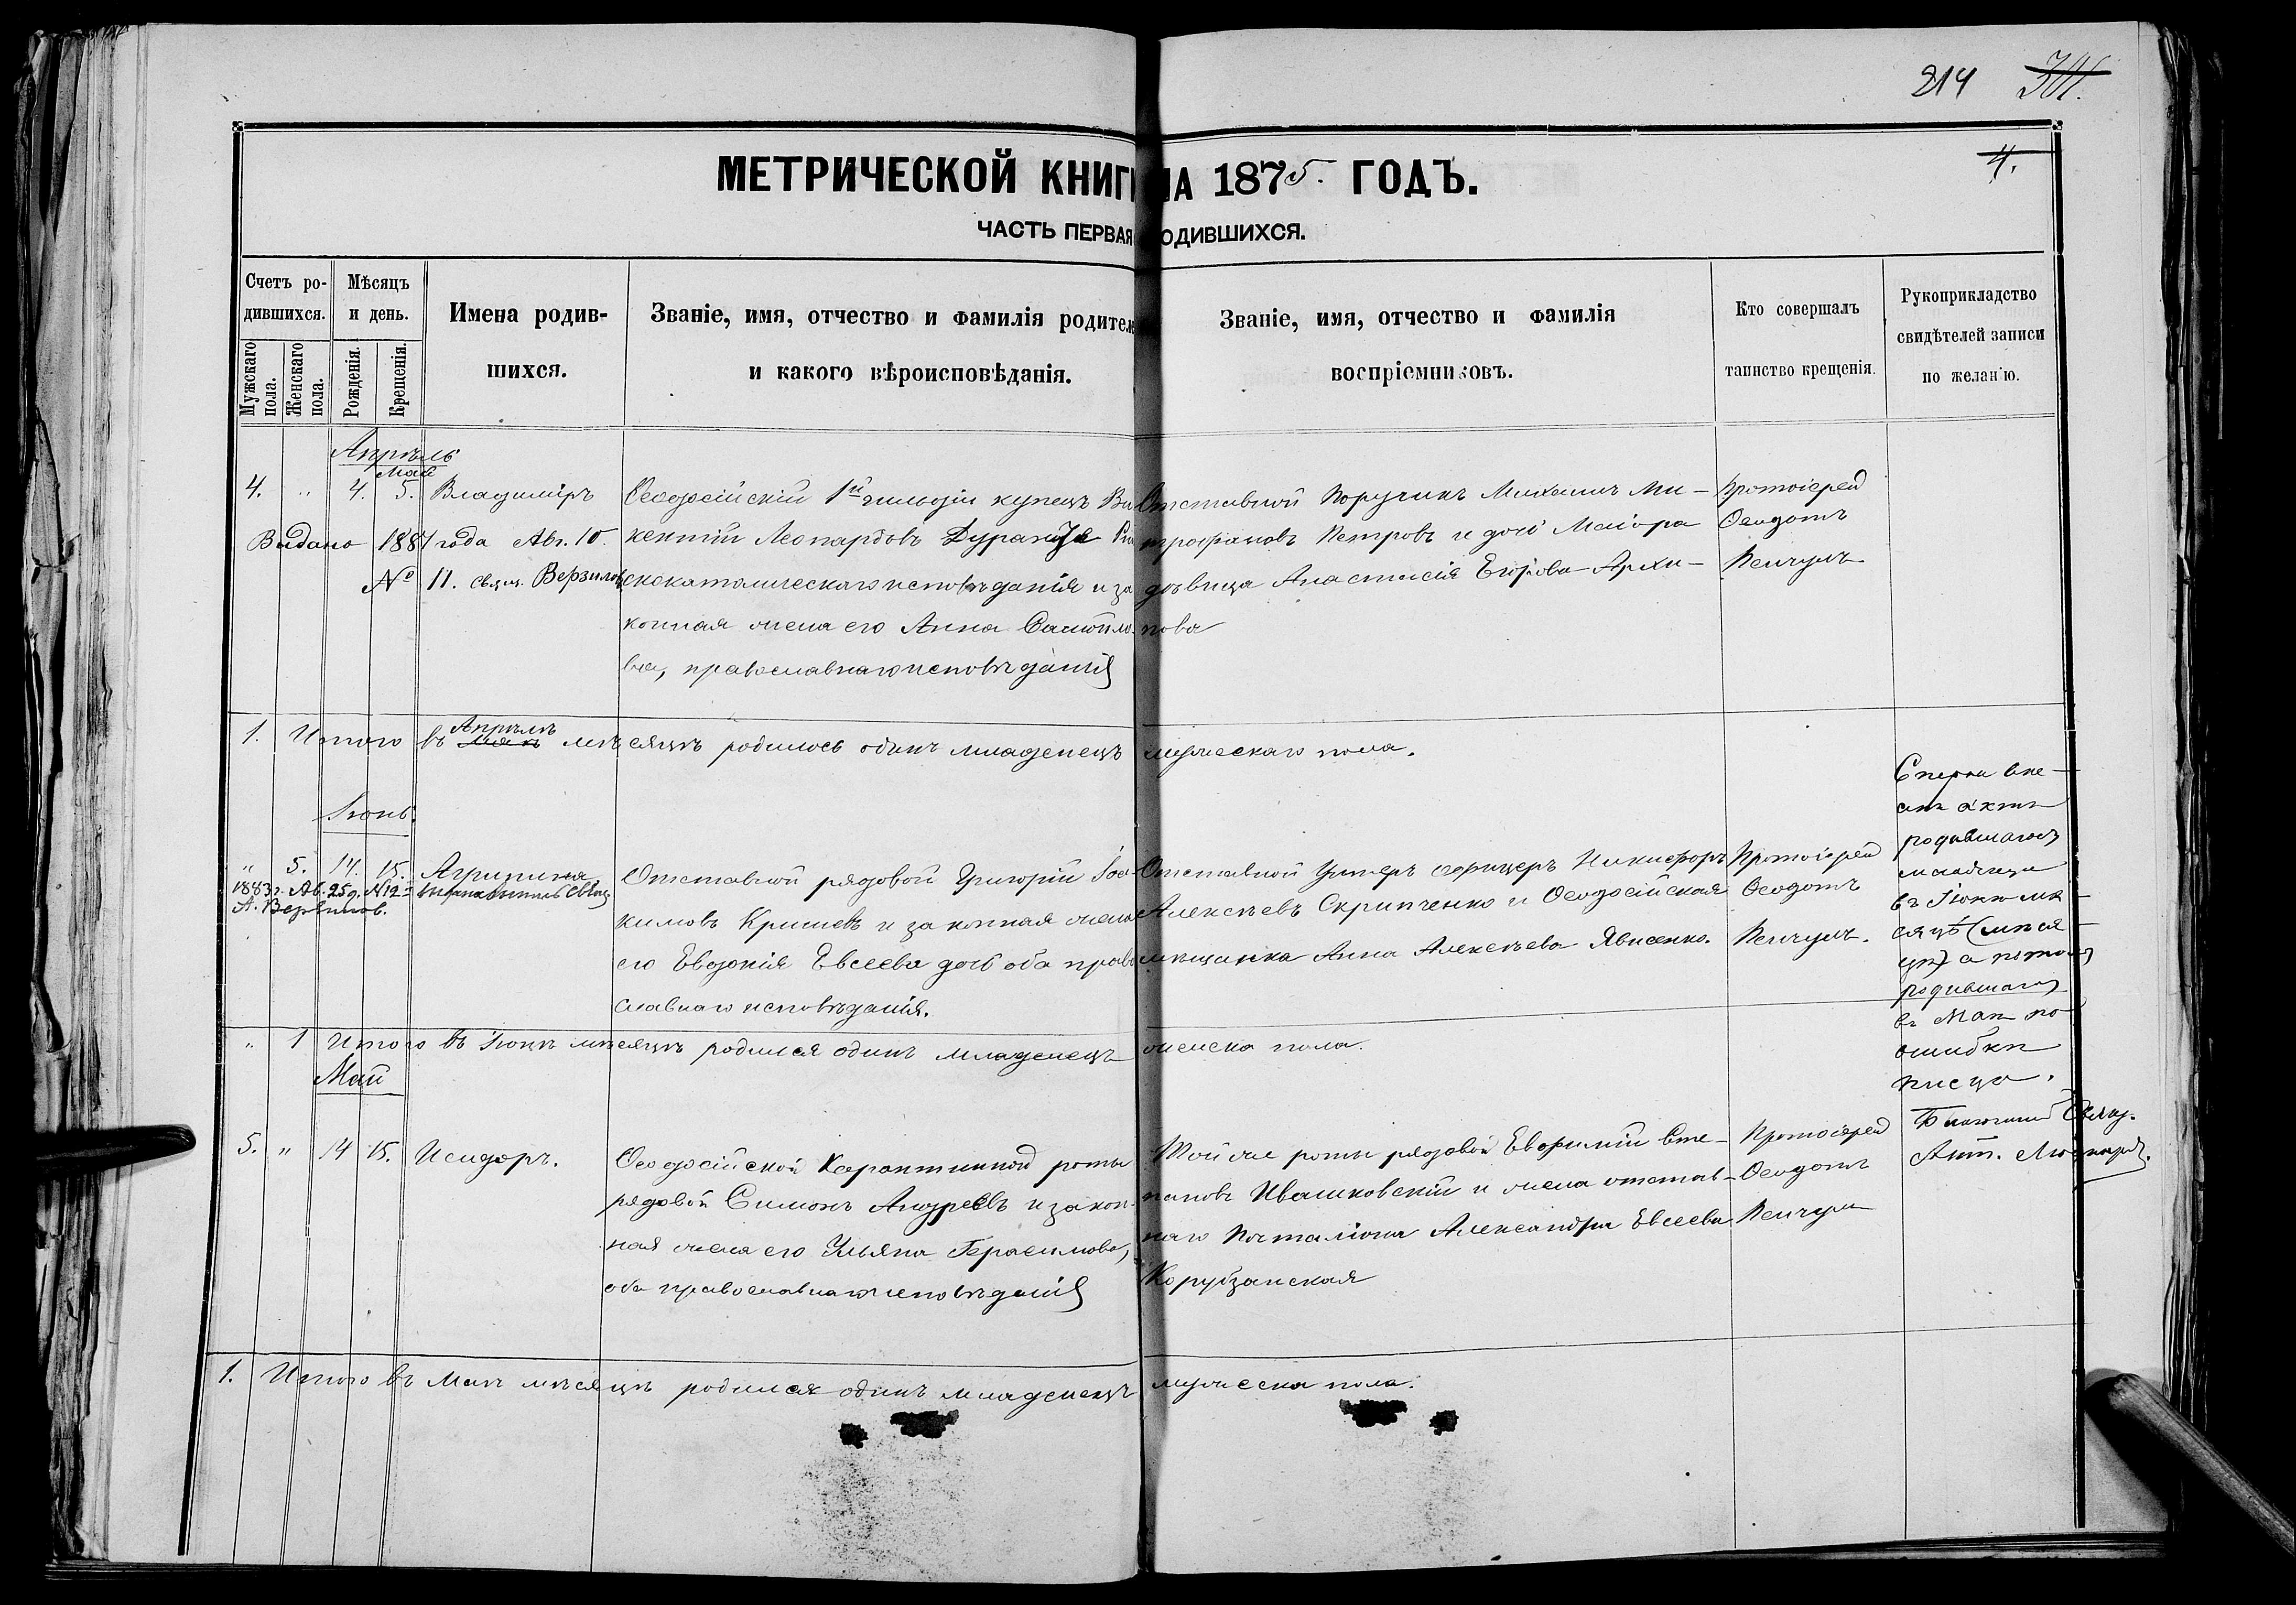 214 341.
4.
МЕТРИЧЕСКОЙ КНИГИ НА 1875. ГОДЪ.
ЧАСТЬ ПЕРВАЯ ОДИВШИХСЯ.
Счетъ ро-
дившихся.
Мужскаго пола.
Женскаго пола.
Мѣсяцъ
и день.
Рожденія.
Крещенія.
Имена родив-
шихся.
Званіе, имя, отчество и фамилія родителе
и какого вѣроисповѣданія.
Званіе, имя, отчество и фамилія
воспріемниковъ.
Кто совершалъ
таинство крещенія.
Рукоприкладство
свидѣтелей записи
по желанію.
Апрѣль
Май
4. " 4. 5. Владиміръ
Видано 1887 года Авг. 10.
№ 11. свящ. Верзиловъ
Ѳеодосійскій 1й гильдіи купецъ Ви
кентій Леопардовъ Дуранте Ри
скокатолическаго исповѣданія и за
конная жена его Анна Самойло
ва, православнаго исповѣданія
Отставной Поручикъ Михаилъ Ми-
трофановъ Петровъ и дочь Маіора
дѣвица Анастасія Егорова Архи-
пова
Протоіерей
Ѳеодотъ
Венчулъ
1. Итого въ Маѣ Апрѣлѣ мѣсяцѣ родилось одинъ младенецъ мужескаго пола.
Іюнь.
" 5. 14. 15. Агрипина
1883 г. Ав. 25 д. №12
А. Верзилов.
Отставной рядовой Григорій Іоа
кимовъ Кришевъ и законная жена
его Евдокія Евсеева дочь оба право
славнаго исповѣданія.
Отставной Унтеръ офицеръ Никифоръ
Алексѣевъ Скрипченко и Ѳеодосійская
мѣщанка Анна Алексѣева Явисенко.
Протоіерей
Ѳеодотъ
Венчулъ.
Сперва вне-
санъ актъ
родившагося
младенца
въ Іюнѣ мѣ-
сяцѣ (мѣся
цѣ) а потомъ
родившагося
въ Маѣ по
ошибкѣ
писца.
Свящ.
Ант.
" 1 Итого въ Іюнѣ мѣсяцѣ родился одинъ младенецъ женска пола.
Май
5. " 14 15. Исидоръ.
Ѳеодосійской Карантинной роты
рядовой Симонъ Андреевъ и закон-
ная жена его Ульяна Герасимова,
оба православнаго исповѣданія
Той же роты рядовой Евфимій Сте-
пановъ Ивашковскій и жена отстав-
наго Почталіона Александра Евсеева
Корубзанская
Протоіерей
Ѳеодотъ
Венчулъ
1. Итого въ Маѣ мѣсяцѣ родился одинъ младенецъ мужеска пола.